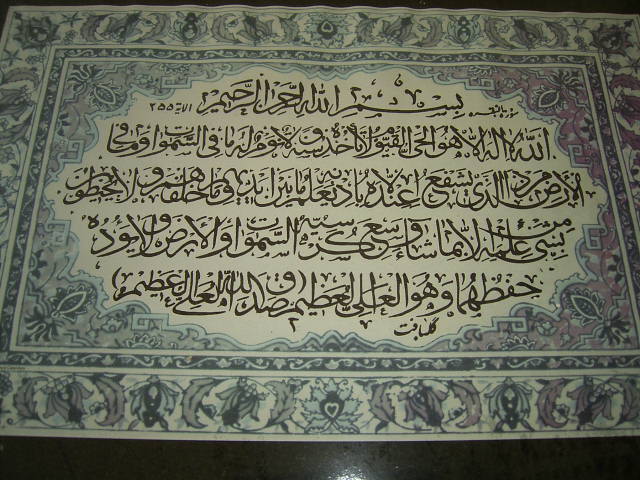 سورة البقرة بسم الله الرحمن الرحيم الآية ٢٥٥
الله لا اله الا هو الحي القيوم لا تأخذه سنة ولا نوم له ما في السموات وما في
الأرض من ذا الذي يشفع عنده الا باذنه يعلم ما بين ايديهم وما خلفهم ولا يحيطون
بشيء من علمه الا بما شاء وسع كرسيه السموات والأرض ولا يؤده
حفظهما وهو العلي العظيم (صدق الله العلي العظيم)